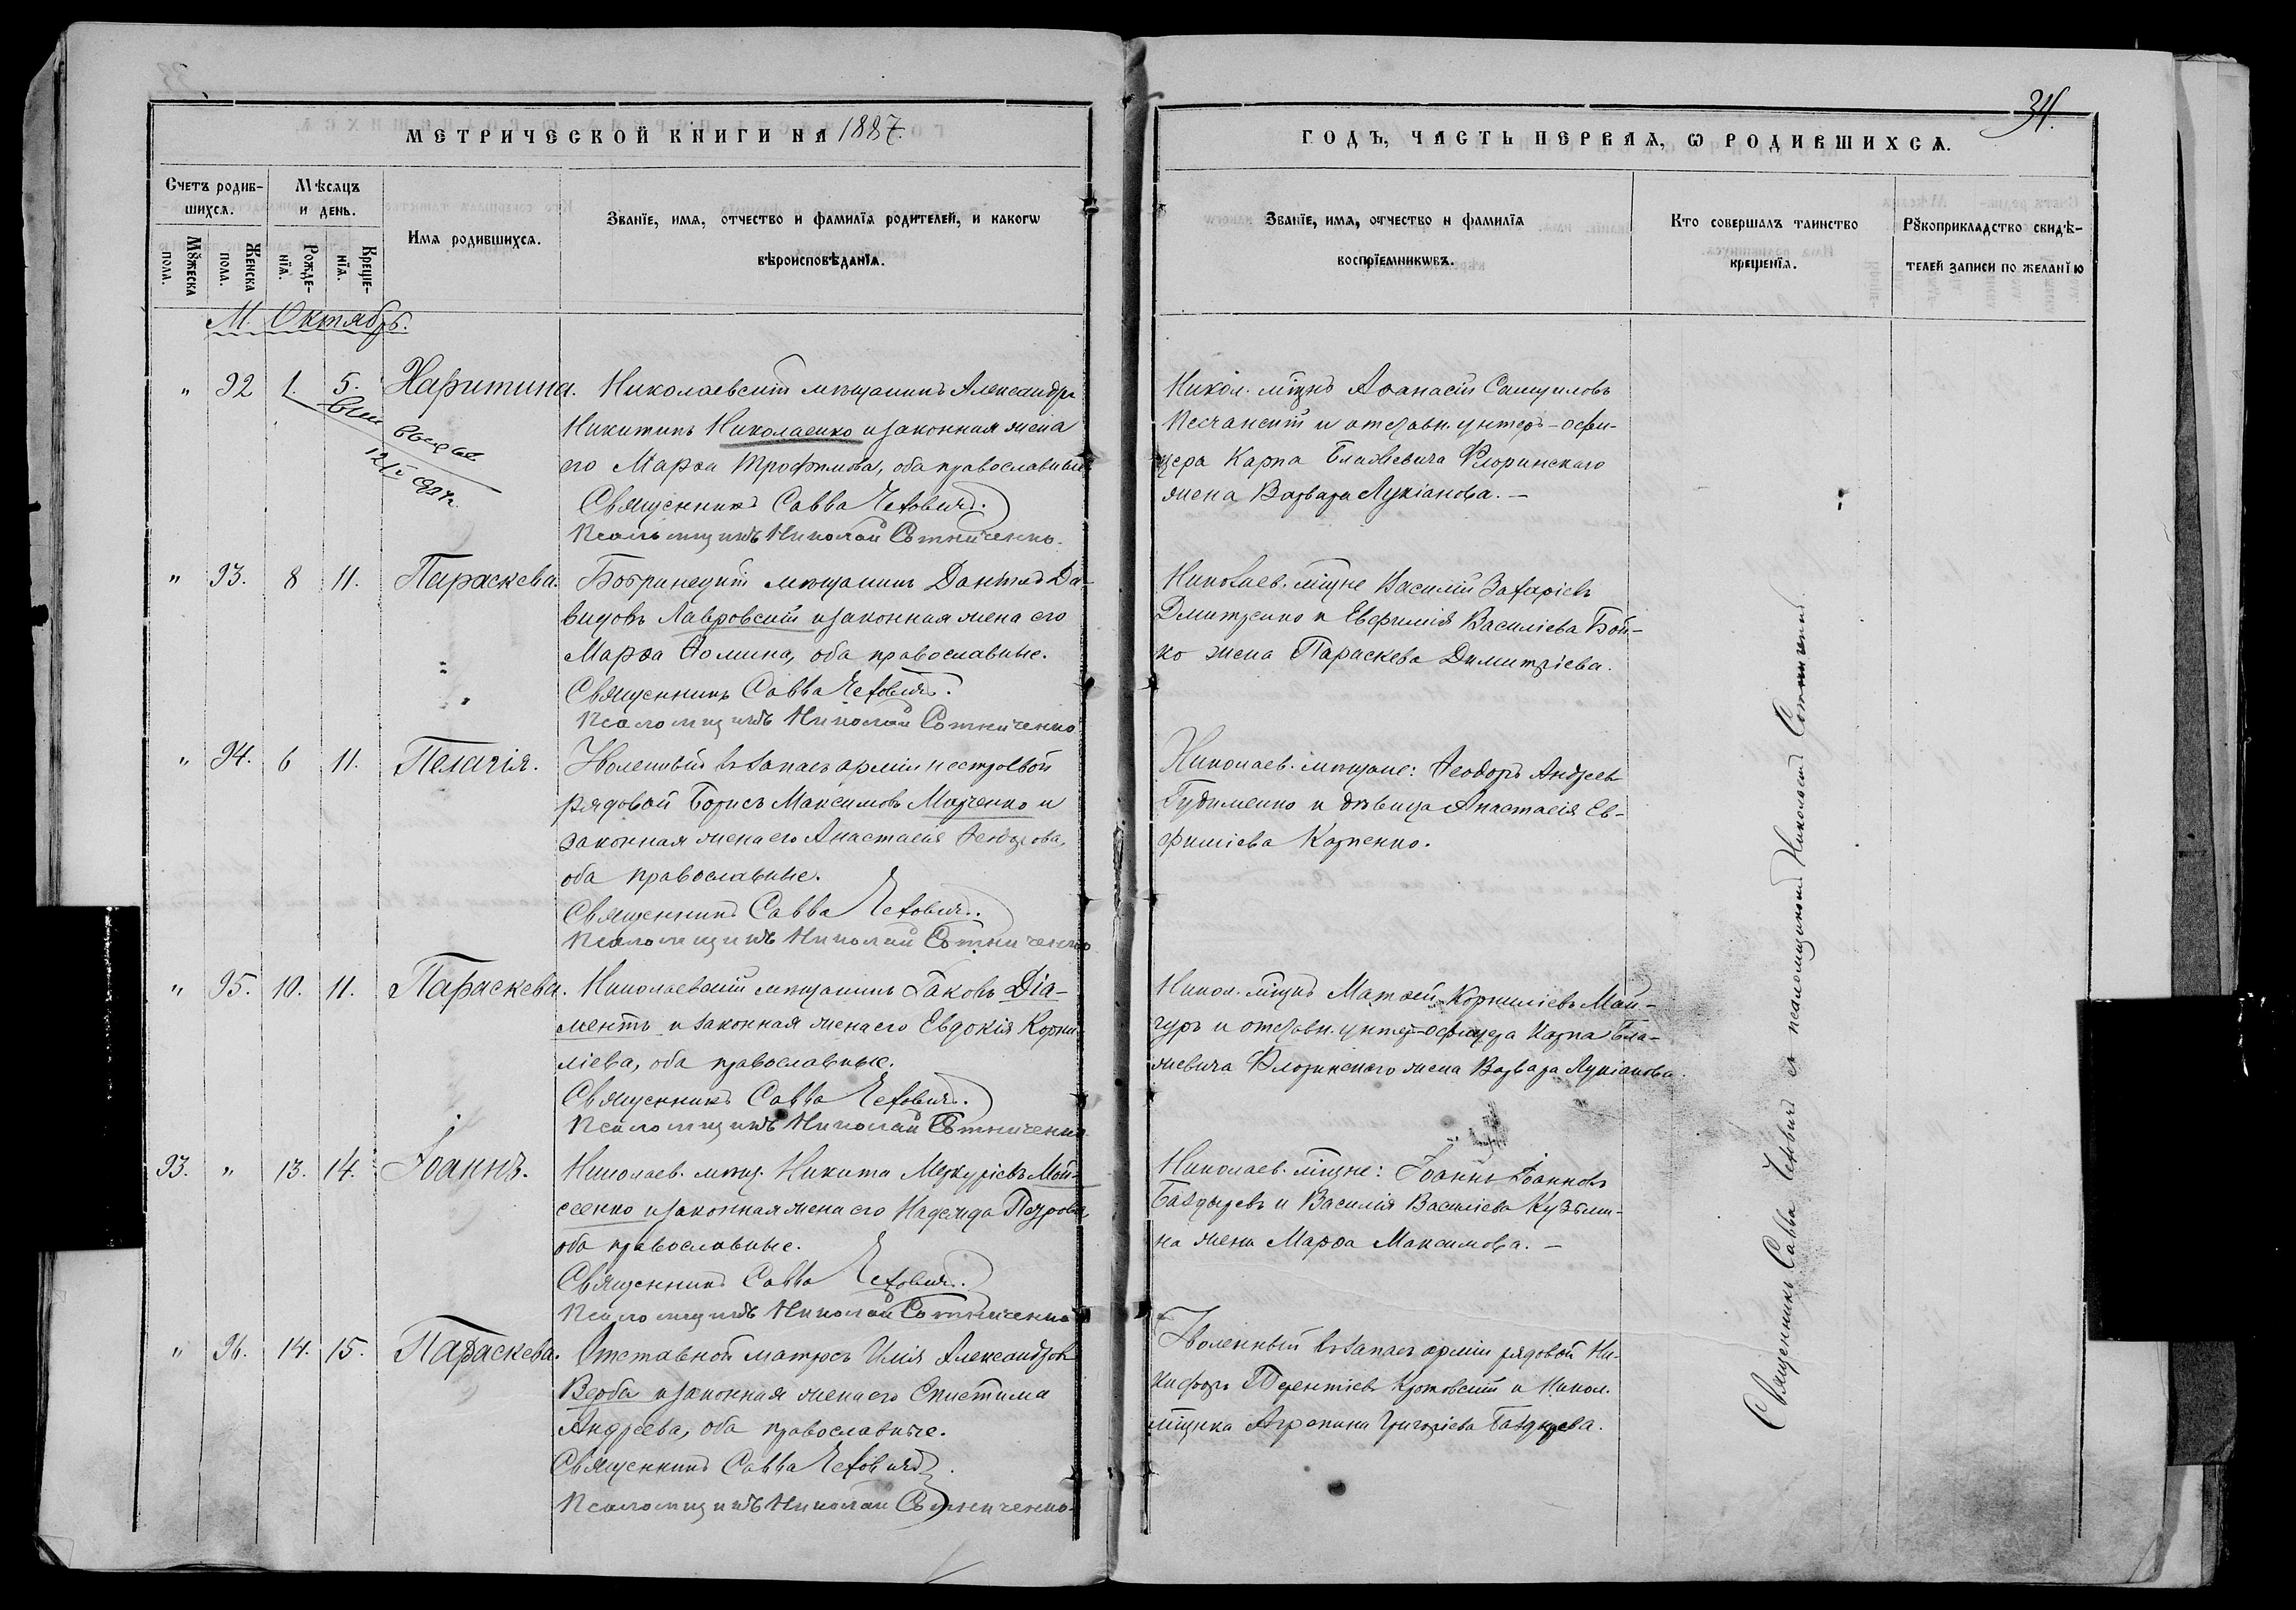 34.
МЕТРИЧЕСКОЙ КНИГИ НА 1887.
ГОДЪ, ЧАСТЬ ПЕРВАѦ, Ѡ РОДИВШИХСѦ.
Счетъ родив-
шихсѧ.
Мѣсѧцъ
и день.
Имѧ родившихсѧ.
Званїе, имѧ, отчество и фамилїѧ родителей, и какогѡ
вѣроисповѣданїѧ.
Мꙋжеска
пола.
Женска
пола.
Рожде-
нїѧ.
Креще-
нїѧ.
Званїе, имѧ, отчество и фамилїѧ
воспрїемникѡвъ.
Кто совершалъ таинство
крещенїѧ.
Рꙋкоприкладство свидѣ-
телей записи по желанїю
М. Октябрь.
" 92 1. 5. Харитина. Николаевскій мѣщанинъ Александръ
Никитинъ Николаенко и законная жена
его Марѳа Трофимова, оба православные
Священникъ Савва Чехович.
Псаломщикъ Николай Сотниченко.
Никол. мѣщнъ Аѳанасій Самуиловъ
Песчанскій и отставн. унтеръ-офи-
цера Карпа Флоринскаго
жена Варвара Лукіанова. —
" 93. 8 11. Параскева. Бобринецкій мѣщанинъ Даніилъ Да-
видовъ Лавровскій и законная жена его
Марѳа Ѳомина, оба православные.
Священникъ Савва Чехович.
Псаломщикъ Николай Сотниченко
Николаев. мѣщне Василій Захаріевъ
Дмитренко и Евфимія Василіева Бой-
ко жена Параскева Димитріева.
" 94. 6 11. Пелагія. Уволенный въ запасъ арміи нестроевой
рядовой Борисъ Максимовъ Марченко и
законная жена его Анастасія Ѳеодорова,
оба православные.
Священникъ Савва Чехович.
Псаломщикъ Николай Сотниченко
Николаев. мѣщане: Ѳеодоръ Андреев
Гудименко и дѣвица Анастасія Ев-
фиміева Карпенко.
" 95. 10. 11. Параскева. Николаевскій мѣщанинъ Іаковъ Діа-
ментъ и законная жена его Евдокія Корни-
ліева, оба православные.
Священникъ Савва Чехович.
Псаломщикъ Николай Сотниченко
Никол. мѣщнъ Матѳей Корниліевъ Май-
гуръ и отставн. унтеръ-офицера Карпа Вла-
жевича Флоринскаго жена Варвара Лукіанова.
93. " 13. 14. Іоаннъ. Николаев. мѣщ. Никита Меркуріевъ Мой-
сеенко и законная жена его Надежда Петрова,
оба православные.
Священникъ Савва Чехович.
Псаломщикъ Николай Сотниченко
Николаев. мѣщне: Іоаннъ Іоанновъ
Баздыревъ и Василія Василіева Кузьми-
на жена Марѳа Максимова. —
" 96. 14. 15. Параскева. Отставной матросъ Илія Александров
Верба и законная жена его
Андреева, оба православные.
Священникъ Савва Чехович.
Псаломщикъ Николай Сотниченко.
Уволенный въ запасъ арміи рядовой Ни-
кифоръ Терентіевъ Кротовскій и Никол.
мѣщнка Агрепина Григоріева Баздырева.
Священникъ Савва Чехович съ псаломщикомъ Николаемъ